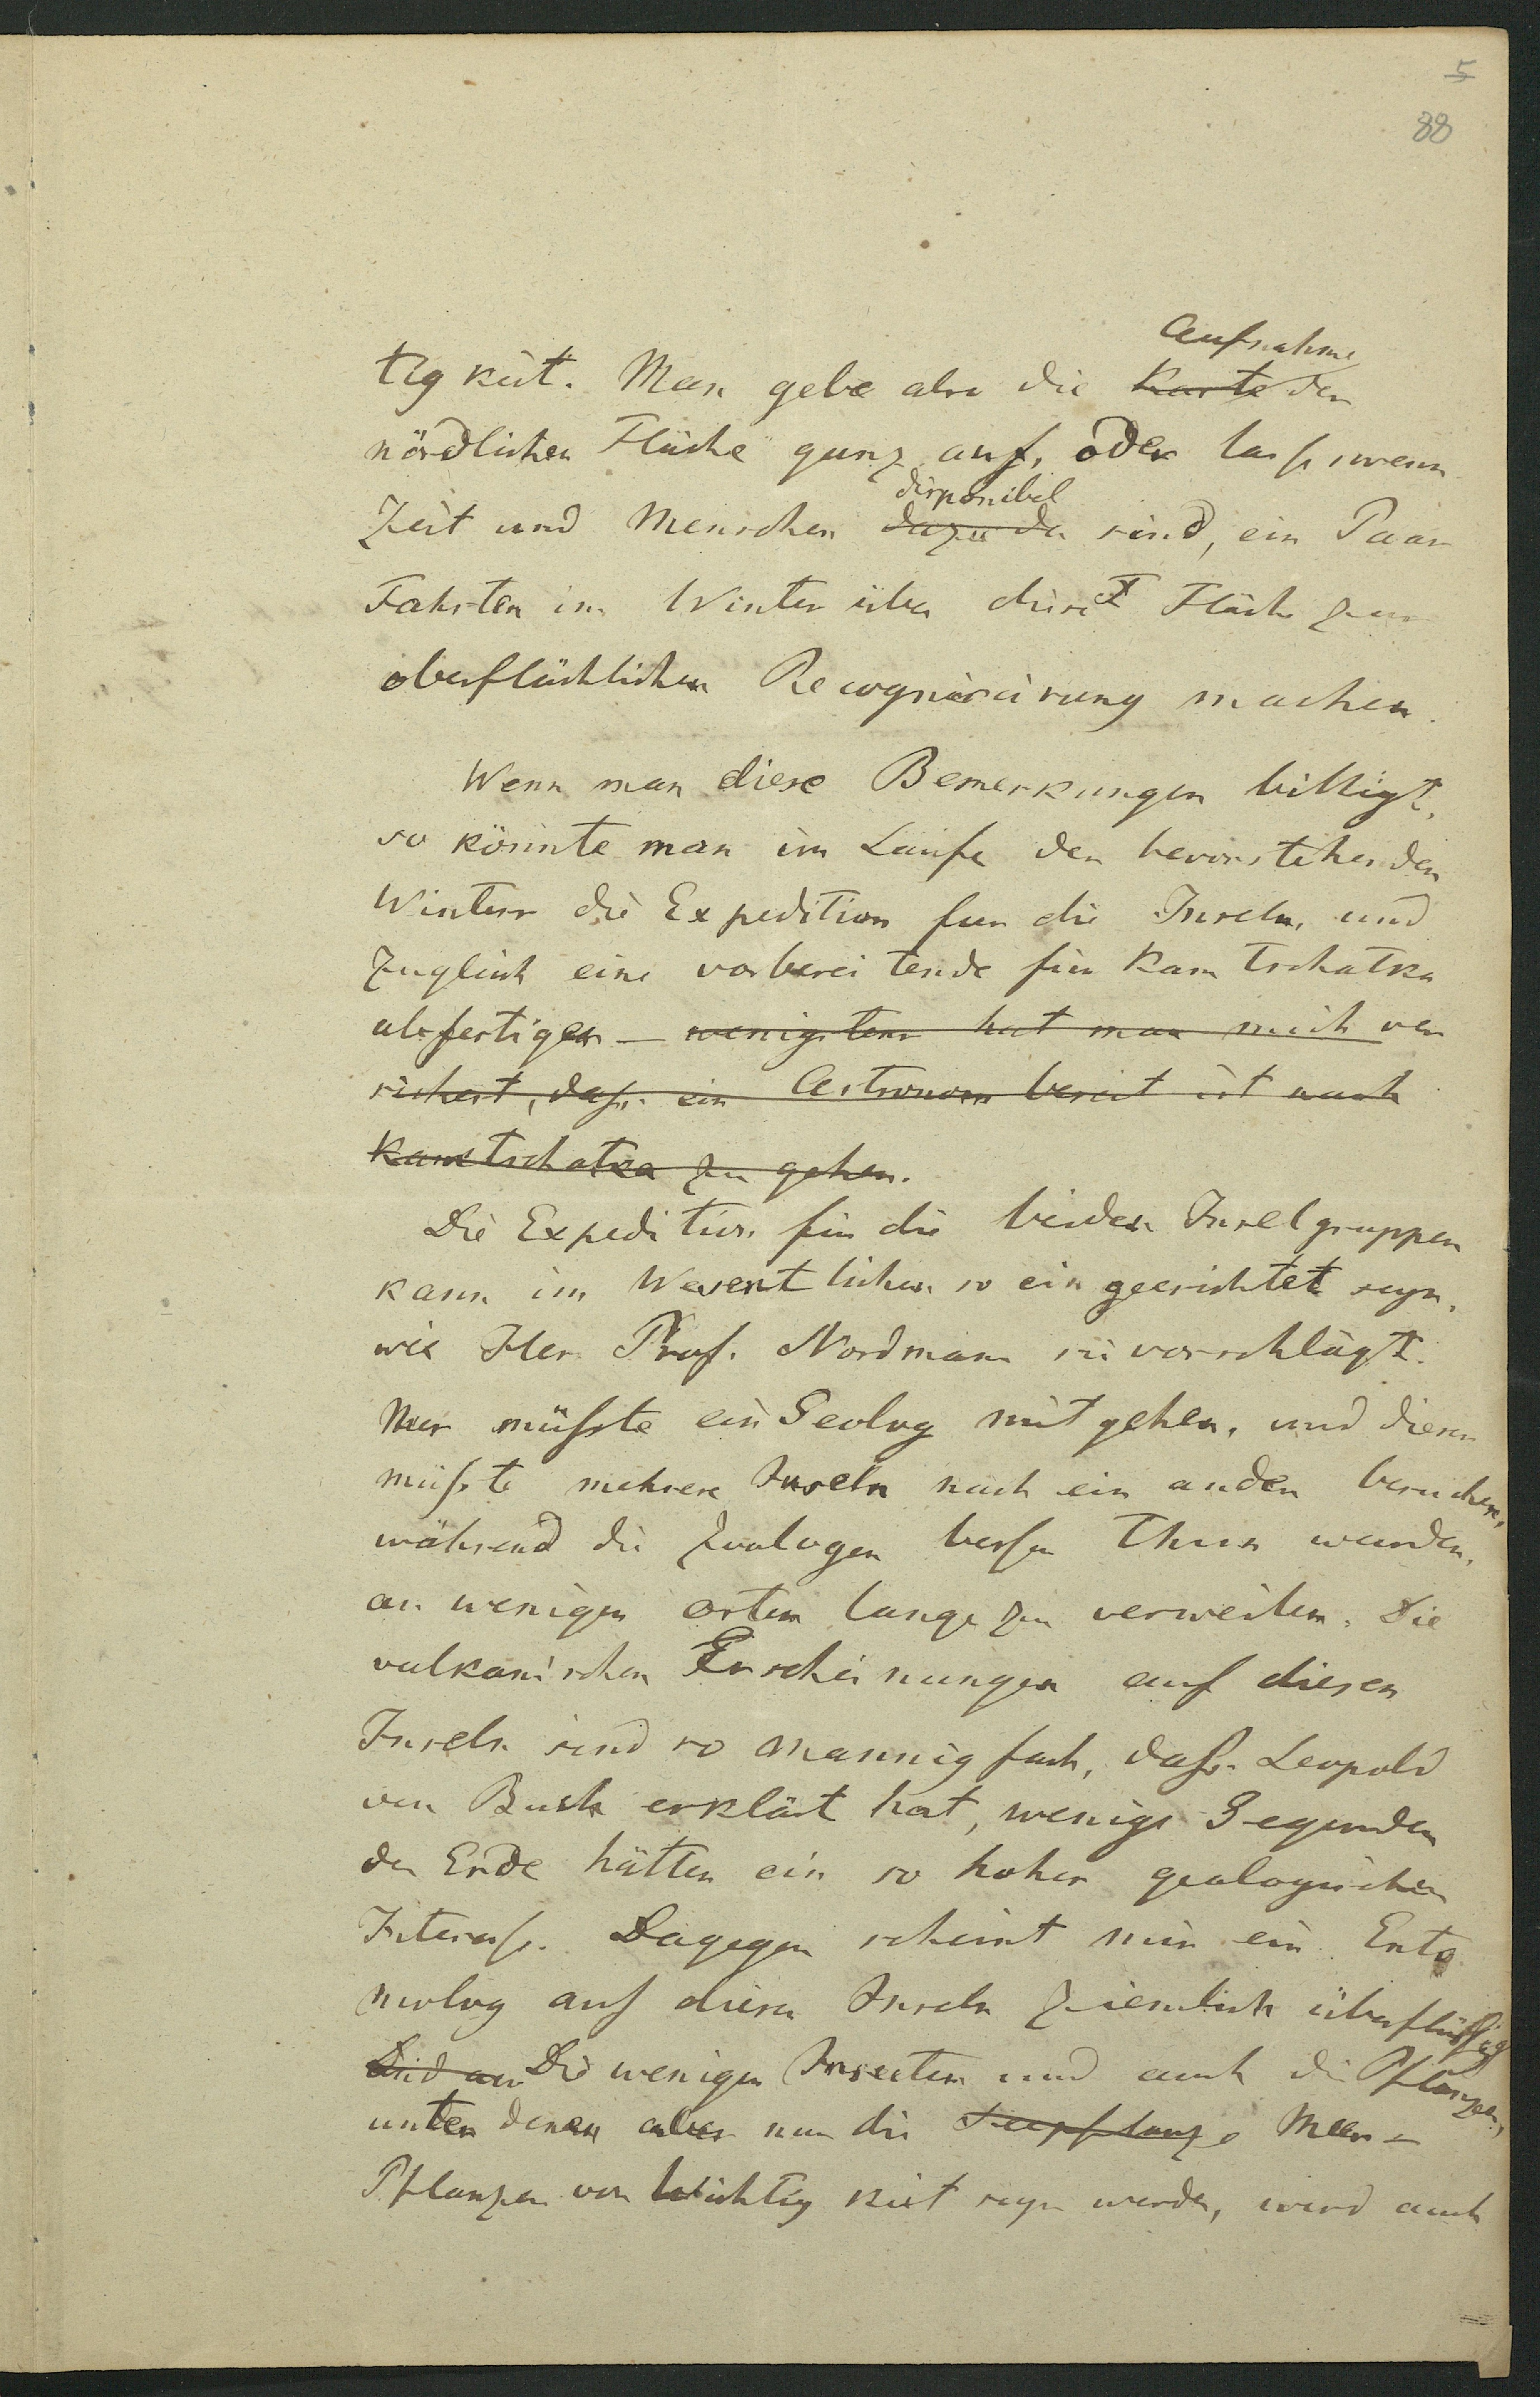 5
88
Aufnahme
tigkeit. Man gebe also die Karte der
nördlichen Fläche ganz auf, oder lass, wenn
disponibel
Zeit und Menschen dazu da sind, ein Paar
Fahrten im Winter über diese Fläche zur
oberflächlichen Recognisirung machen.
Wenn man diese Bemerkungen billigt,
so könnte man im Laufe des bevorstehenden
Winters die Expedition fur die Inseln, und
zugleich eine vorbereitende für Kamtschatka
abfertigen – wenigstens hat man mich ver
sichert, dass ein Astronom bereit ist nach
Kamtschatka zu gehen.
Die Expedition für die beiden Inselgruppen
kann im Wesentlichen so eingerichtet seyn,
wie Herr Prof. Nordmann sie vorschlägt.
Nur müsste ein Geolog mitgehen, und dieser
müsste mehrere Inseln nach ein ander besuchen,
während die Zoologen besser thun werden,
an wenigen Orten lange zu verweilen. Die
vulkanischen Erscheinungen auf diesen
Inseln sind so mannigfach, dass Leopold
von Buch erklärt hat, wenige Gegenden
der Erde hätten ein so hohes geologisches
Interesse. Dagegen scheint mir ein Ento
molog auf diesen Inseln ziemlich überflüssig
Die wenigen Insecten und auch die Pflanzen,
unter denen aber nur die Seepflanze Meer-
Pflanzen von Wichtigkeit seyn werden, wird auch